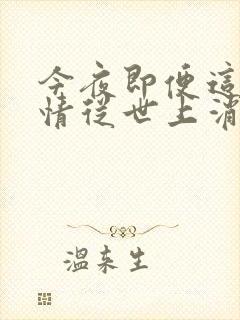 今夜即便這
情從世上消
溫來生